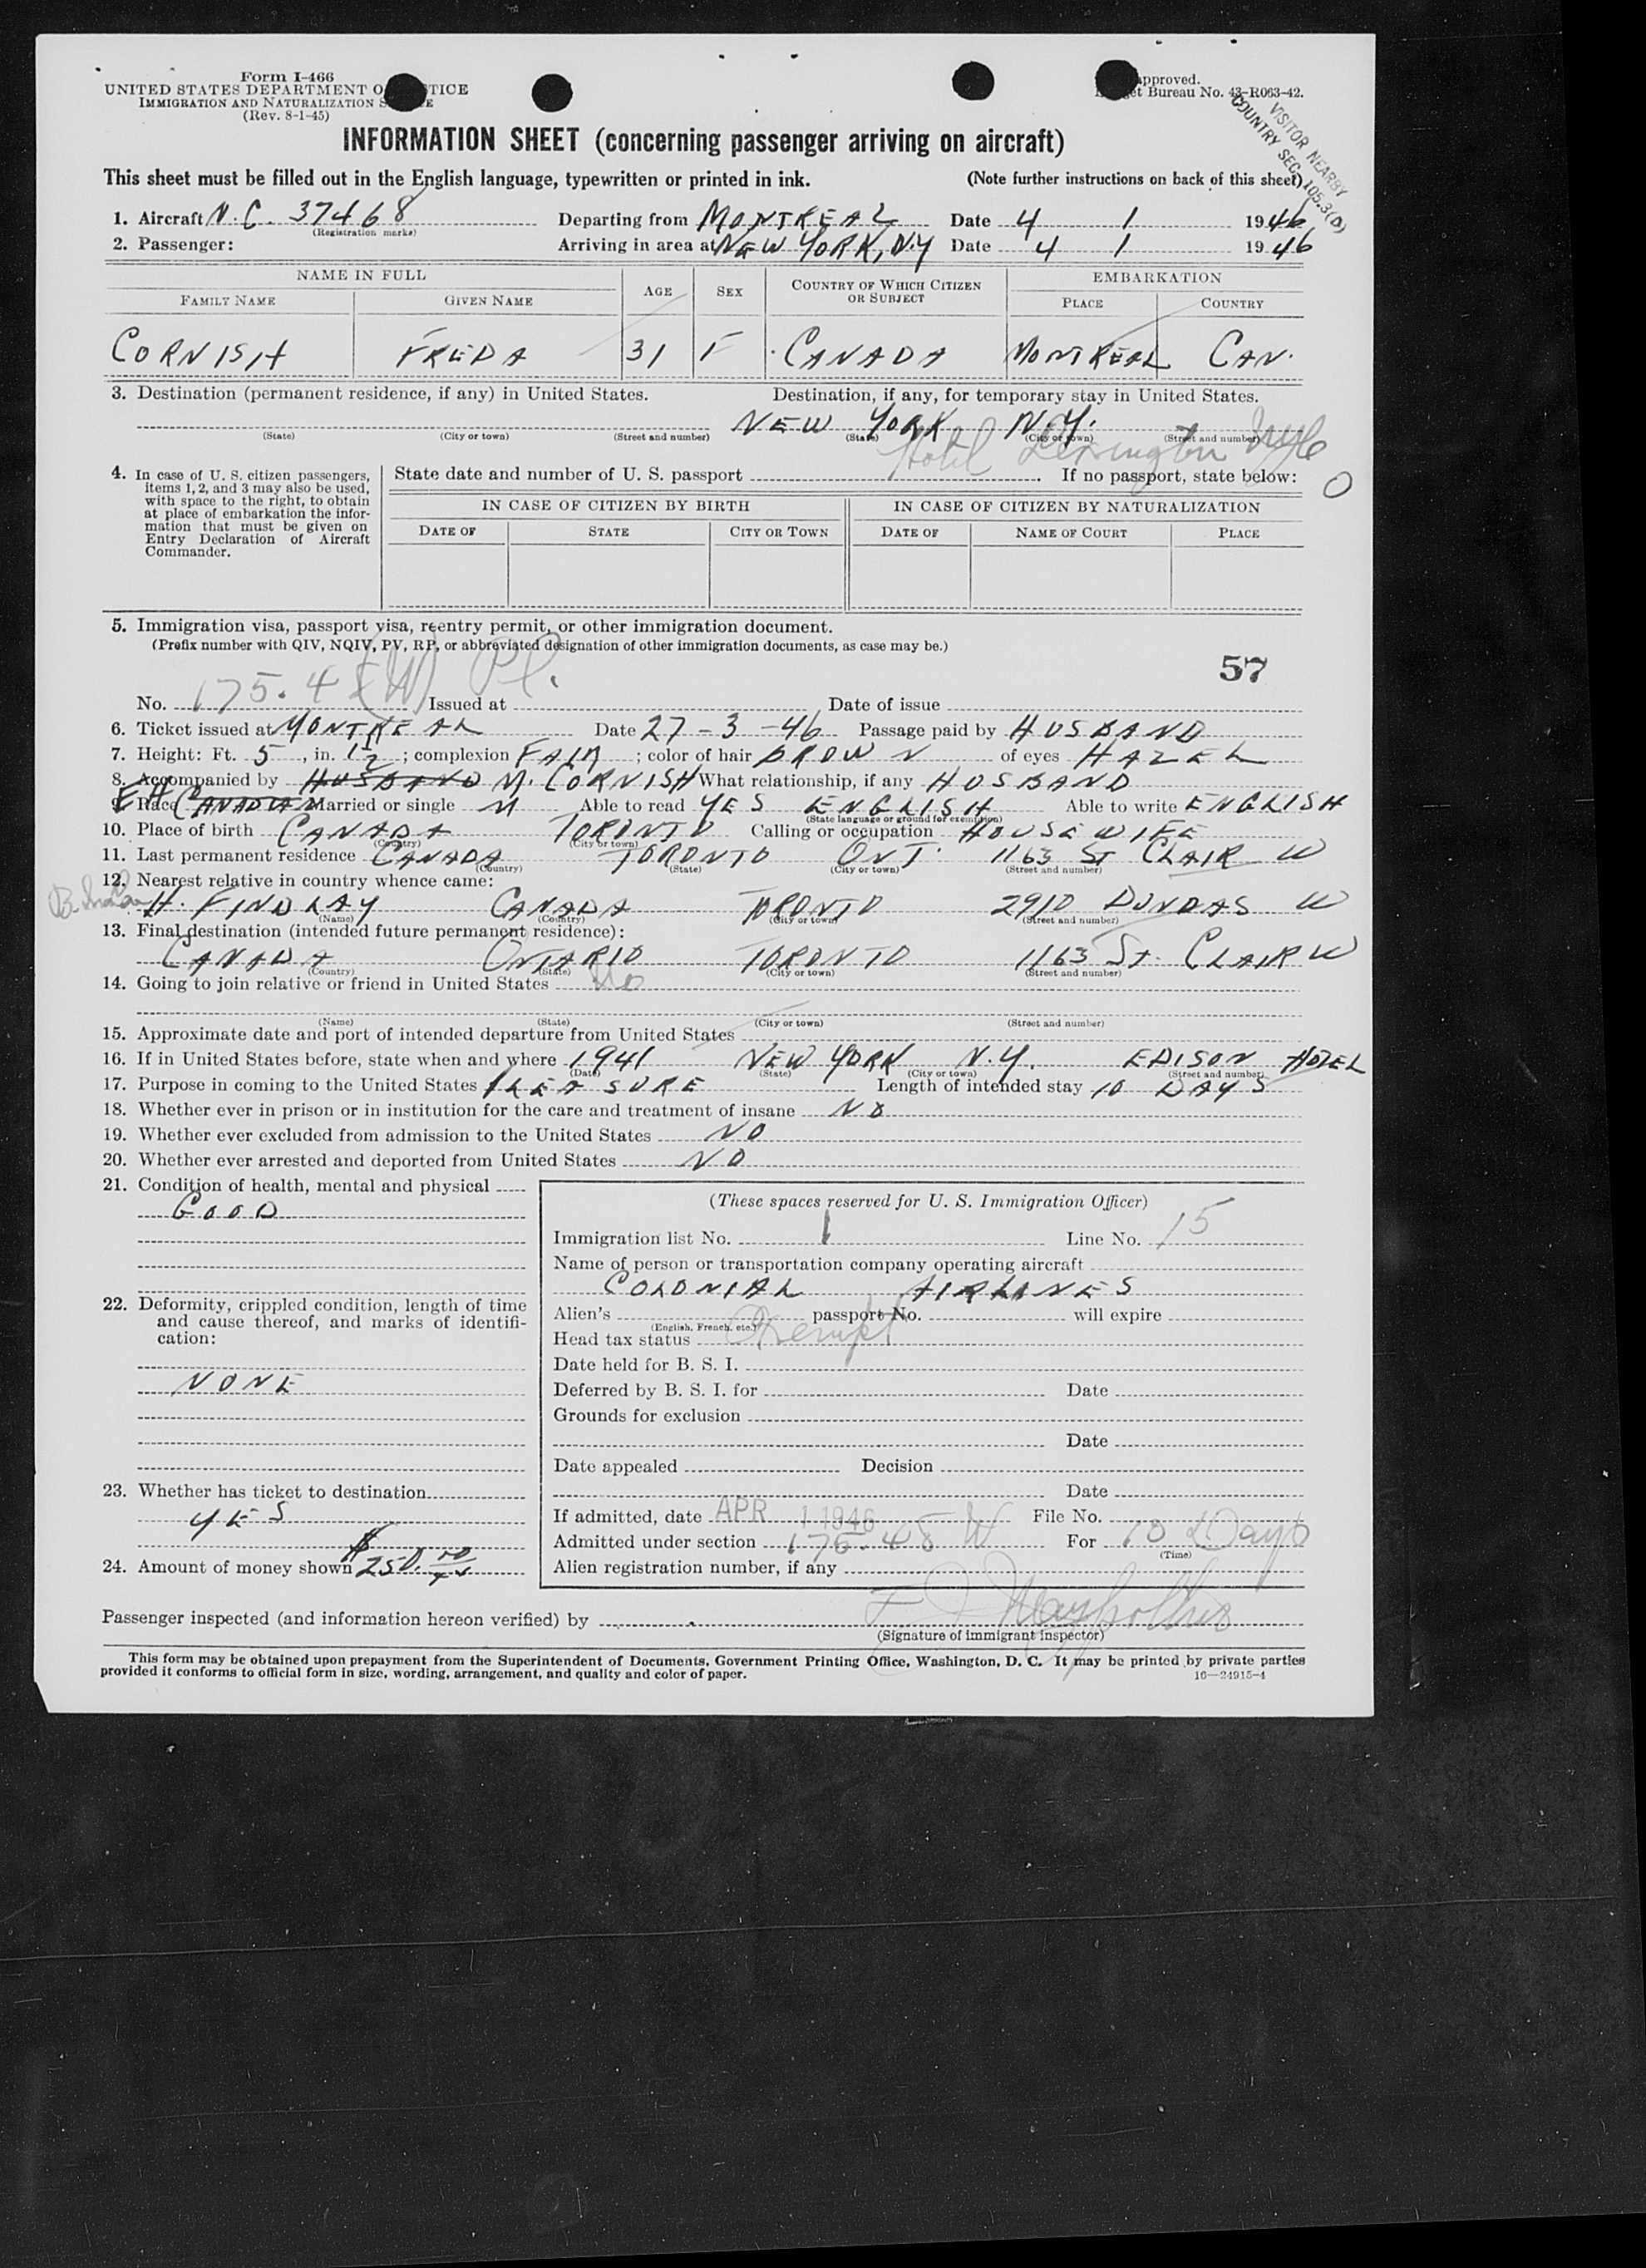 Form I-466
UNITED STATES DEPARTMENT O TICE
IMMIGRATION AND NATURALIZATION S E
(Rev. 8-1-45)
pproved.
et Bureau No. 43-R063-42.
VISITOR NEARBY
COUNTRY SEC. 105.3(D)
INFORMATION SHEET (concerning passenger arriving on aircraft)
This sheet must be filled out in the English language, typewritten or printed in ink. (Note further instructions on back of this sheet)
1. Aircraft N.C. 37468 Departing from MONTREAL Date 4 1 1946
(Registration marks)
2. Passenger: Arriving in area at NEW YORK, N.Y Date 4 1 1946
NAME IN FULL AGE SEX COUNTRY OF WHICH CITIZEN OR SUBJECT EMBARKATION
FAMILY NAME GIVEN NAME PLACE COUNTRY
CORNISH FREDA 31 F CANADA MONTREAL CAN.
3. Destination (permanent residence, if any) in United States. Destination, if any, for temporary stay in United States.
NEW YORK N.Y.
(State) (City or town) (Street and number) (State) (City or town) (Street and number)
Hotel Lexington
4. In case of U. S. citizen passengers, items 1, 2, and 3 may also be used, with space to the right, to obtain at place of embarkation the information that must be given on Entry Declaration of Aircraft Commander.
State date and number of U. S. passport . If no passport, state below: O
IN CASE OF CITIZEN BY BIRTH IN CASE OF CITIZEN BY NATURALIZATION
DATE OF STATE CITY OR TOWN DATE OF NAME OF COURT PLACE
5. Immigration visa, passport visa, reentry permit, or other immigration document.
(Prefix number with QIV, NQIV, PV, RP, or abbreviated designation of other immigration documents, as case may be.)
57
No. 175.4 (W) Issued at Date of issue
6. Ticket issued at MONTREAL Date 27-3-46 Passage paid by HUSBAND
7. Height: Ft. 5, in. 1½; complexion FAIR; color of hair BROWN of eyes HAZEL
8. Accompanied by HUSBAND M. CORNISH What relationship, if any HUSBAND
9. Race CANADIAN Married or single M Able to read YES ENGLISH Able to write ENGLISH
(State language or ground for exemption)
10. Place of birth CANADA TORONTO Calling or occupation HOUSEWIFE
(Country) (City or town)
11. Last permanent residence CANADA TORONTO ONT. 1163 ST CLAIR W
(Country) (State) (City or town) (Street and number)
12. Nearest relative in country whence came:
H. FINDLAY CANADA TORONTO 2910 DUNDAS W
(Name) (Country) (City or town) (Street and number)
13. Final destination (intended future permanent residence):
CANADA ONTARIO TORONTO 1163 St. CLAIR W
(Country) (State) (City or town) (Street and number)
14. Going to join relative or friend in United States No
(Name) (State) (City or town) (Street and number)
15. Approximate date and port of intended departure from United States
16. If in United States before, state when and where 1941 NEW YORK N.Y. EDISON HOTEL
(Date) (State) (City or town) (Street and number)
17. Purpose in coming to the United States PLEASURE Length of intended stay 10 DAYS
18. Whether ever in prison or in institution for the care and treatment of insane NO
19. Whether ever excluded from admission to the United States NO
20. Whether ever arrested and deported from United States NO
21. Condition of health, mental and physical
GOOD
22. Deformity, crippled condition, length of time and cause thereof, and marks of identification:
NONE
23. Whether has ticket to destination
YES
24. Amount of money shown $250.
(These spaces reserved for U. S. Immigration Officer)
Immigration list No. 1 Line No. 15
Name of person or transportation company operating aircraft
COLONIAL AIRLINES
Alien's passport No. will expire
(English, French, etc.)
Head tax status Exempt
Date held for B. S. I.
Deferred by B. S. I. for Date
Grounds for exclusion
Date
Date appealed Decision
Date
If admitted, date APR 1 1946 File No.
Admitted under section 175.48 W For 10 Days
(Time)
Alien registration number, if any
Passenger inspected (and information hereon verified) by
(Signature of immigrant inspector)
This form may be obtained upon prepayment from the Superintendent of Documents, Government Printing Office, Washington, D. C. It may be printed by private parties
provided it conforms to official form in size, wording, arrangement, and quality and color of paper. 16—24915-4